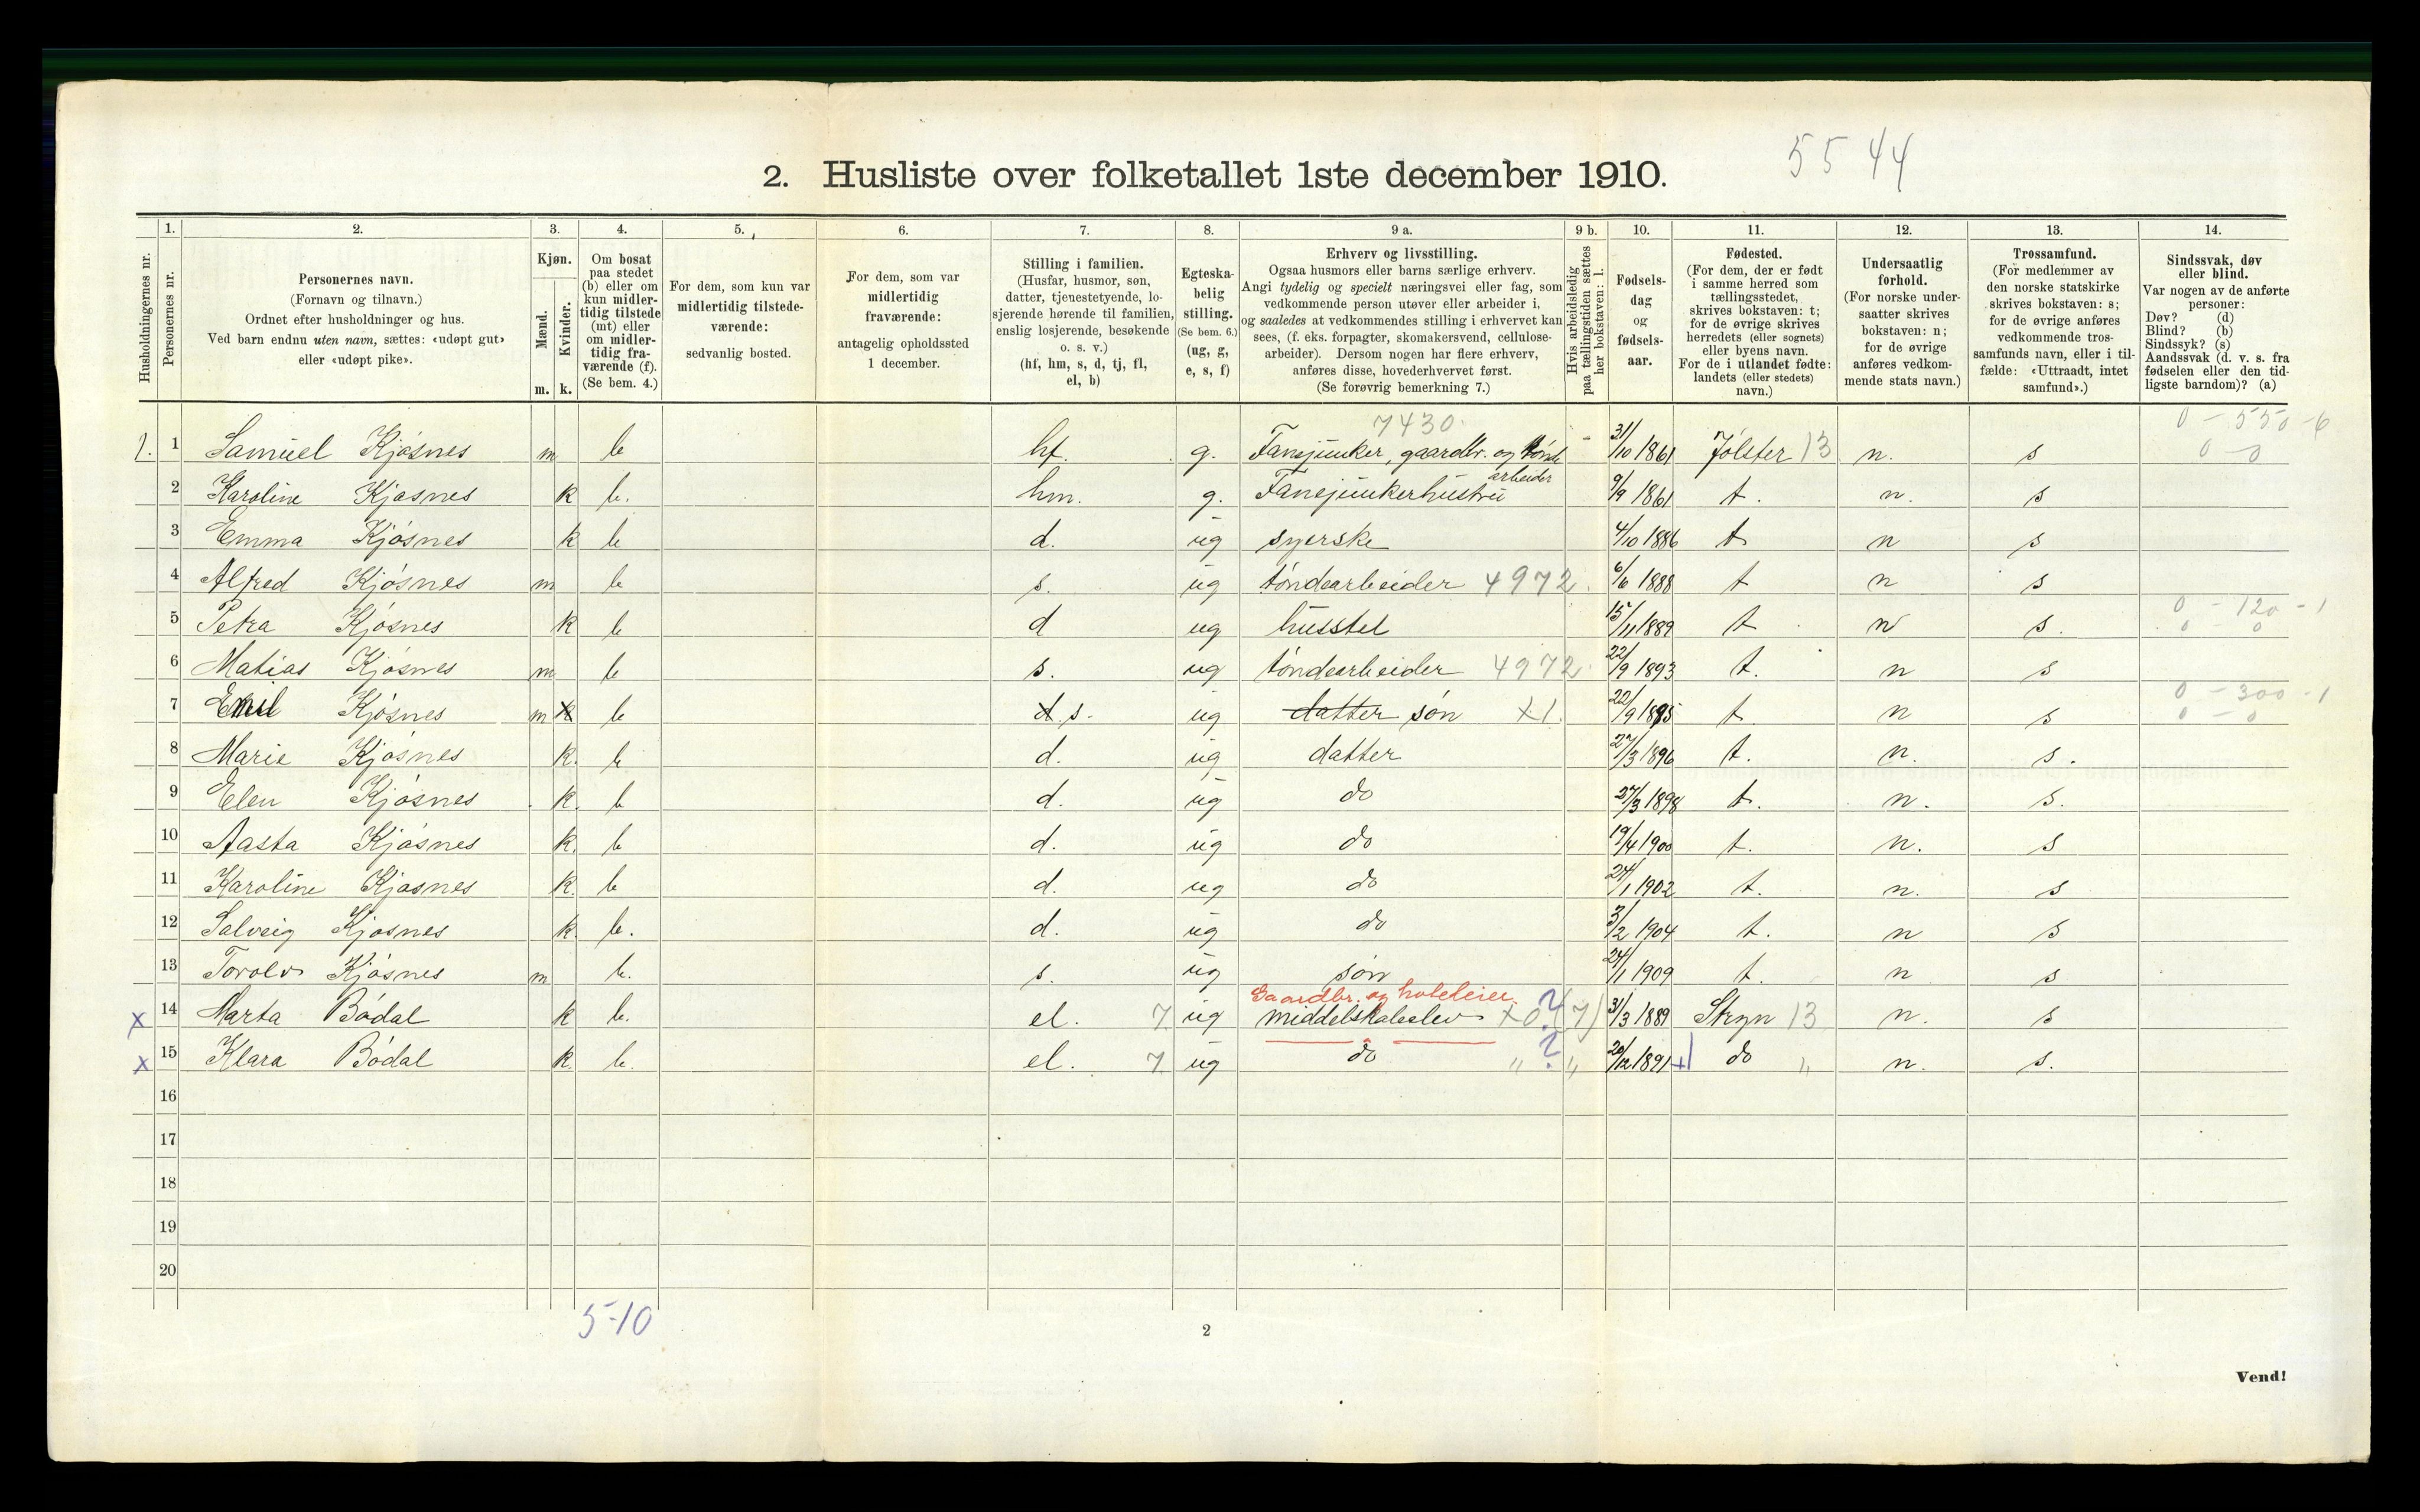 55 44
2. Husliste over folketallet 1ste december 1910.
1. 2. 3. 4. 5. 6. 7. 8. 9 a. 9 b. 10. 11. 12. 13. 14.
Husholdningernes nr.
Personernes nr.
Personernes navn.
(Fornavn og tilnavn.)
Ordnet efter husholdninger og hus.
Ved barn endnu uten navn, sættes: «udøpt gut»
eller «udøpt pike».
Kjøn.
Mænd.
Kvinder.
m. k.
Om bosat
paa stedet
(b) eller om
kun midler-
tidig tilstede
(mt) eller
om midler-
tidig fra-
værende (f).
(Se bem. 4.)
For dem, som kun var
midlertidig tilstede-
værende:
sedvanlig bosted.
For dem, som var
midlertidig
fraværende:
antagelig opholdssted
1 december.
Stilling i familien.
(Husfar, husmor, søn,
datter, tjenestetyende, lo-
sjerende hørende til familien,
enslig losjerende, besøkende
o. s. v.)
(hf, hm, s, d, tj, fl,
el, b)
Egteska-
belig
stilling.
(Se bem. 6.)
(ug, g,
e, s, f)
Erhverv og livsstilling.
Ogsaa husmors eller barns særlige erhverv.
Angi tydelig og specielt næringsvei eller fag, som
vedkommende person utøver eller arbeider i,
og saaledes at vedkommendes stilling i erhvervet kan
sees, (f. eks. forpagter, skomakersvend, cellulose-
arbeider). Dersom nogen har flere erhverv,
anføres disse, hovederhvervet først.
(Se forøvrig bemerkning 7.)
Hvis arbeidsledig
paa tællingstiden sættes
her bokstaven: l.
Fødsels-
dag
og
fødsels-
aar.
Fødested.
(For dem, der er født
i samme herred som
tællingsstedet,
skrives bokstaven: t;
for de øvrige skrives
herredets (eller sognets)
eller byens navn.
For de i utlandet fødte:
landets (eller stedets)
navn.)
Undersaatlig
forhold.
(For norske under-
saatter skrives
bokstaven: n;
for de øvrige
anføres vedkom-
mende stats navn.)
Trossamfund.
(For medlemmer av
den norske statskirke
skrives bokstaven: s;
for de øvrige anføres
vedkommende tros-
samfunds navn, eller i til-
fælde: «Uttraadt, intet
samfund».)
Sindssvak, døv
eller blind.
Var nogen av de anførte
personer:
Døv? (d)
Blind? (b)
Sindssyk? (s)
Aandssvak (d. v. s. fra
fødselen eller den tid-
ligste barndom)? (a)
7430 0 - 550 - 6
1. 1 Samuel Kjøsnes m b hf. g. Fanejunker, gaardbr. og tønde 31/10 1861 Jølster 13 n. s 0 - 0
arbeider
2 Karoline Kjøsnes k b. hm. g. Fanejunkerhustru 9/9 1861 t. n. s
3 Emma Kjøsnes k b d. ug syerske 4/10 1886 t n s
4 Alfred Kjøsnes m b s. ug tøndearbeider 4972. 6/6 1888 t n s
0 - 120 - 1
5 Petra Kjøsnes k b d ug husstel 15/11 1889 t n s. 0 - 0
6 Matias Kjøsnes m b s. ug tøndearbeider 4972 22/9 1893 t. n s
0 - 300 - 1
7 Emil Kjøsnes m k b d. s. ug datter søn x1. 22/9 1895 t. n s 0 - 0
8 Marie Kjøsnes k. b d. ug datter 27/3 1896 t. n. s.
9 Elen Kjøsnes k. b d. ug do 27/3 1898 t. n. s.
10 Aasta Kjøsnes k. b d. ug do 19/4 1900 t. n. s
11 Karoline Kjøsnes k. b d. ug do 24/1 1902 t. n. s
12 Solveig Kjøsnes k. b. d. ug do 3/2 1904 t. n s
13 Torolv Kjøsnes m b. s. ug søn 24/1 1909 t. n s
Gaardbr. og hoteleier.
x 14 Marta Bødal k b. el. 7 ug middelskoleelev x0 ? (7) 31/3 1889 Stryn 13 n. s
x 15 Klara Bødal k. b. el. 7 ug do " ? " 20/12 1891 +1 do " n. s.
16
17
18
19
20
5-10
2
Vend!